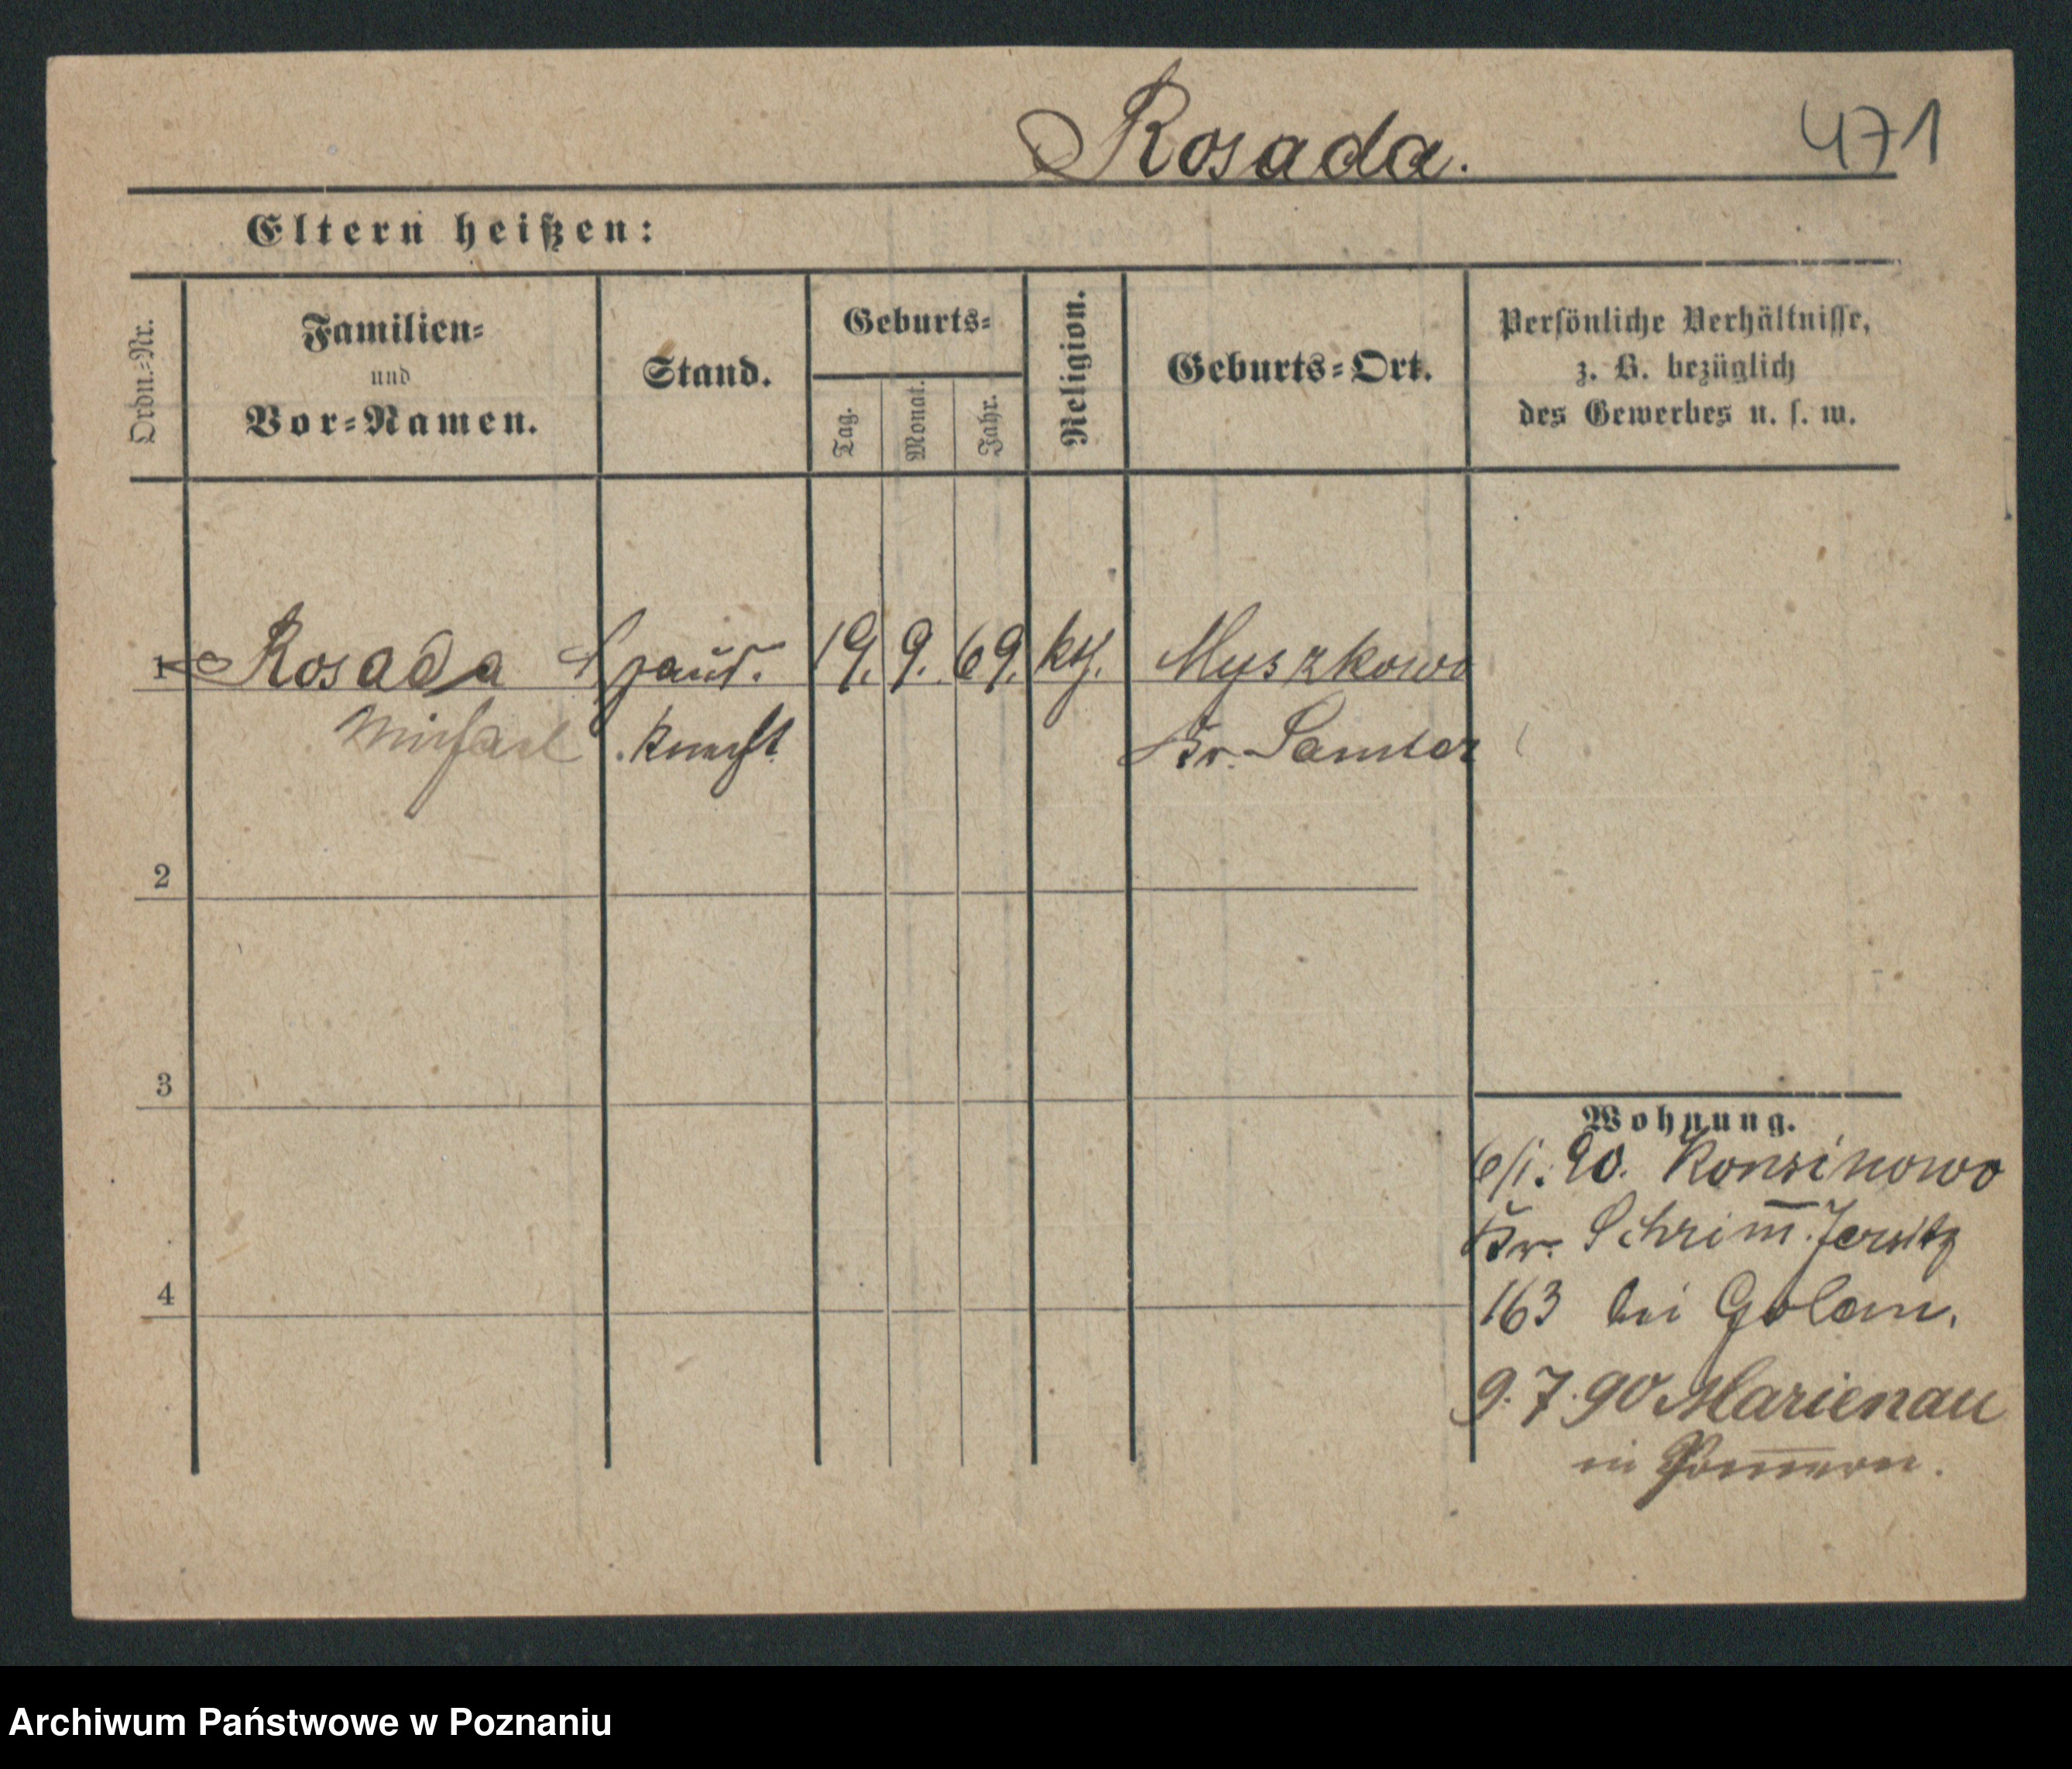 Rosada.
471
Eltern heißen:
Ordn.-Nr.
Familien-
und
Vor-Namen.
Stand.
Geburts-
Tag.
Monat.
Jahr.
Religion.
Geburts-Ort.
Persönliche Verhältnisse,
z. B. bezüglich
des Gewerbes u. s. w.
1 Rosada Hausk. 19. 9. 69. kth. Myszkowo
Michael Knecht Kr. Samter
2
3
4
Wohnung.
6/1. 90. Konsinowo
Kr. Schrimm. Jersitz
163 bei Golam.
9. 7. 90 Marienau
in Pommern.
Archiwum Państwowe w Poznaniu